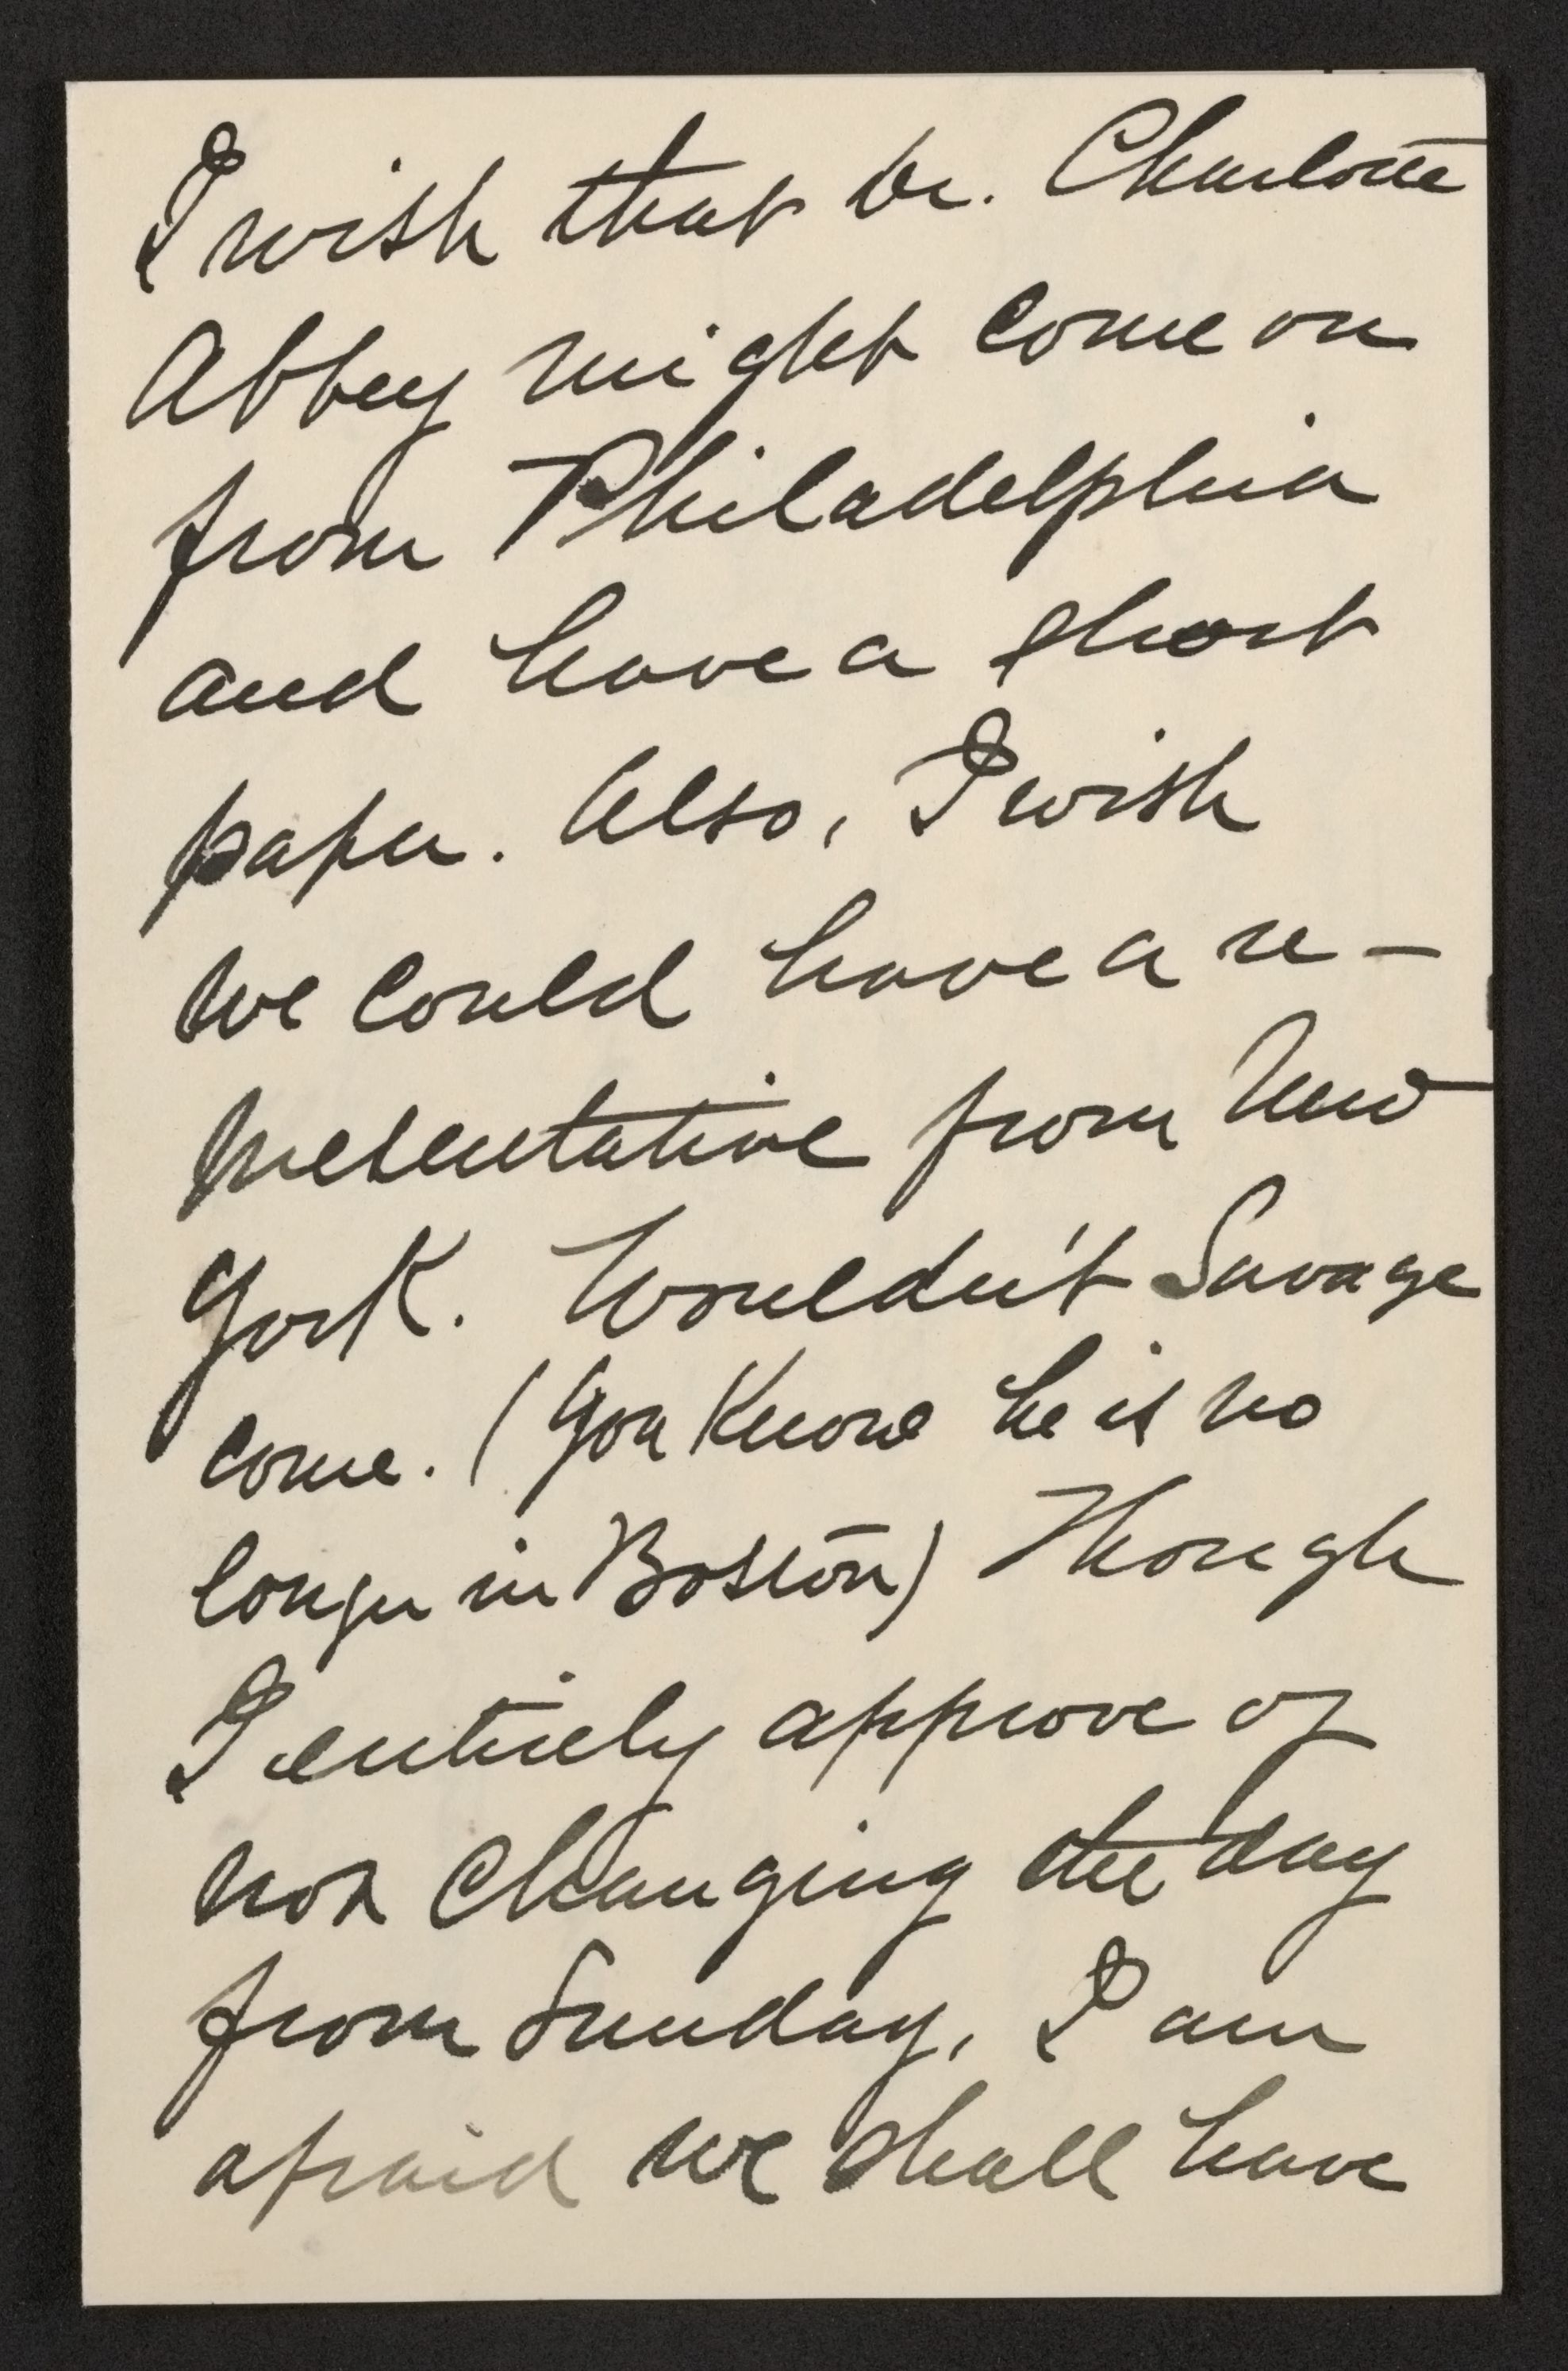 I wish that Dr. Charlotte
Abbey might come on
from Philadelphia
and have a short
paper. Also, I wish
we could have a re-
presentative from New
York. Wouldn't Savage
come. (You know he is no
longer in Boston) Though
I entirely approve of
not changing the day
from Sunday, I am
afraid we shall have